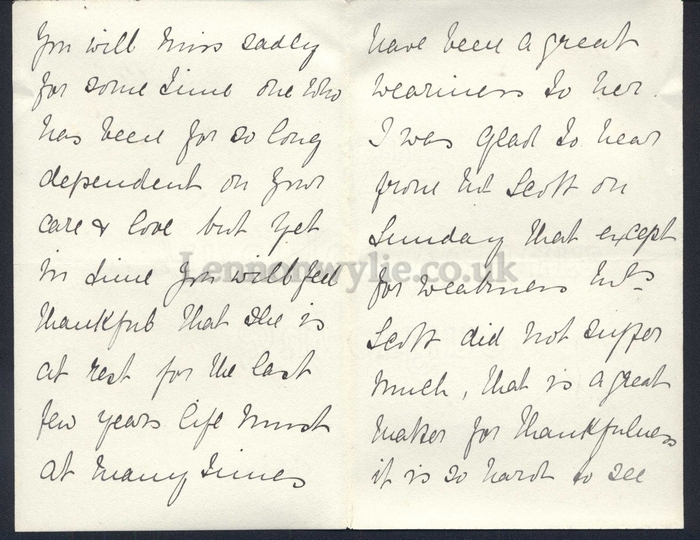 You will miss sadly
for some time one who
has been for so long
dependent on your
care & love but yet
in time you will feel
thankful that she is
at rest for the last
few years life must
at many times
have been a great
weariness to her.
I was glad to hear
from Mr Scott on
Sunday that except
for weakness Mrs
Scott did not suffer
much, that is a great
matter for thankfulness
it is so hard to see
Lennonwylie.co.uk